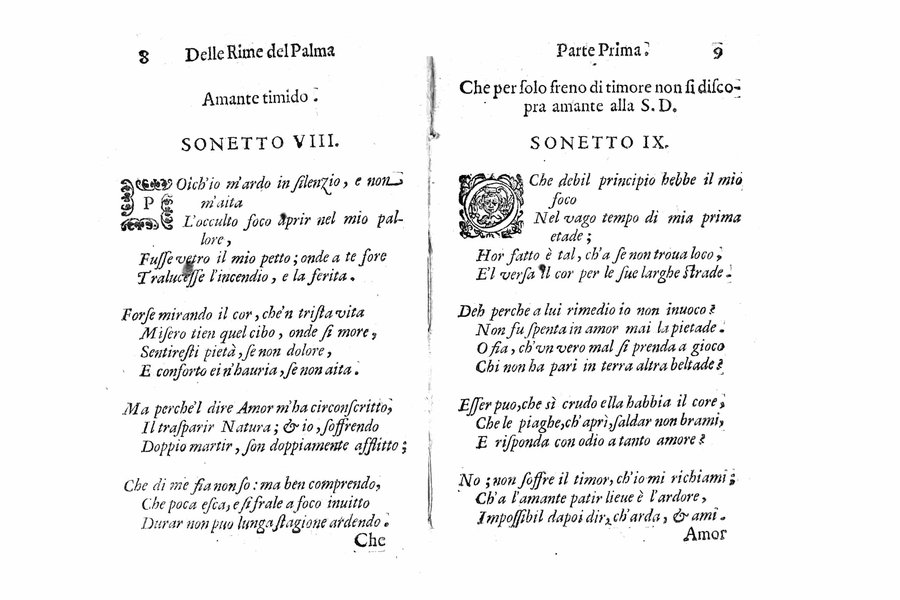 8 Delle Rime del Palma
Amante timido.
SONETTO VIII.
POich'io m'ardo in ſilenzio, e non
m'aita
L'occulto foco aprir nel mio pal-
lore,
Fuſſe vetro il mio petto; onde a te fore
Traluceſſe l'incendio, e la ferita.
Forſe mirando il cor, che'n triſta vita
Miſero tien quel cibo, onde ſi more,
Sentireſti pietà, ſe non dolore,
E conforto ei n'hauria, ſe non aita.
Ma perche'l dire Amor m'ha circonſcritto,
Il traſparir Natura; & io, ſoffrendo
Doppio martir, ſon doppiamente afflitto;
Che di me ſia non ſo: ma ben comprendo,
Che poca eſca, e ſi frale a foco inuitto
Durar non puo lunga ſtagione ardendo.
Che
Parte Prima. 9
Che per ſolo freno di timore non ſi diſco-
pra amante alla S. D.
SONETTO IX.
O Che debil principio hebbe il mio
foco
Nel vago tempo di mia prima
etade;
Hor fatto è tal, ch'a ſe non troua loco;
E'l verſa il cor per le ſue larghe ſtrade.
Deh perche a lui rimedio io non inuoco?
Non fu ſpenta in amor mai la pietade.
O ſia, ch'vn vero mal ſi prenda a gioco
Chi non ha pari in terra altra beltade?
Eſſer puo, che sì crudo ella habbia il core,
Che le piaghe, ch'aprì, ſaldar non brami,
E riſponda con odio a tanto amore?
No; non ſoffre il timor, ch'io mi richiami;
Ch'a l'amante patir lieue è l'ardore,
Impoſſibil dapoi dir, ch'arda, & ami.
Amor